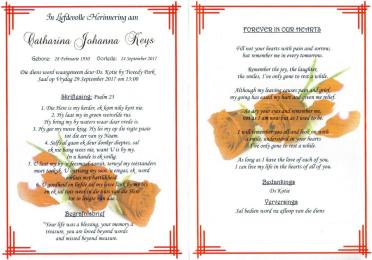 In Liefdevolle Herinnering aan
Catharina Johanna Keys
Gebore: 28 Februarie 1930 Oorlede: 24 September 2017
Die diens word waargeneem deur Ds. Kotie by Tweedy Park
Saal op Vrydag 29 September 2017 om 13:00
Skriflesing: Psalm 23
1. Die Here is my herder, ek kom niks kort nie.
2. Hy laat my in groen weivelde rus.
Hy bring my by waters waar daar vrede is
3. Hy gee my nuwe krag. Hy lei my op die regte paaie
tot die eer van sy Naam.
4. Selfs al gaan ek deur donker dieptes, sal
ek nie bang wees nie, want U is by my.
In u hande is ek veilig.
5. U laat my by 'n feesmaal aansit, terwyl my teëstanders
moet toekyk. U ontvang my soos 'n eregas, ek word
oorlaai met hartlikheid
6. U goedheid en liefde sal my lewe lank by my bly
en ek sal tuis wees in die huis van die Here
tot in lengte van dae.
Begrafnisbrief
"Your life was a blessing, your memory a
treasure, you are loved beyond words
and missed beyond measure.
FOREVER IN OUR HEARTS
Fill not your hearts with pain and sorrow,
but remember me in every tomorrow.
Remember the joy, the laughter,
the smiles, I've only gone to rest a while.
Although my leaving causes pain and grief,
my going has eased my hurt and given me relief.
So dry your eyes and remember me,
not as I am now but, as I used to be.
I will remember you all and look on with
a smile, understand in your hearts
I've only gone to rest a while.
As long as I have the love of each of you,
I can live my life in the hearts of all of you.
Bedankings
Ds Kotie
Verversings
Sal bedien word na afloop van die diens